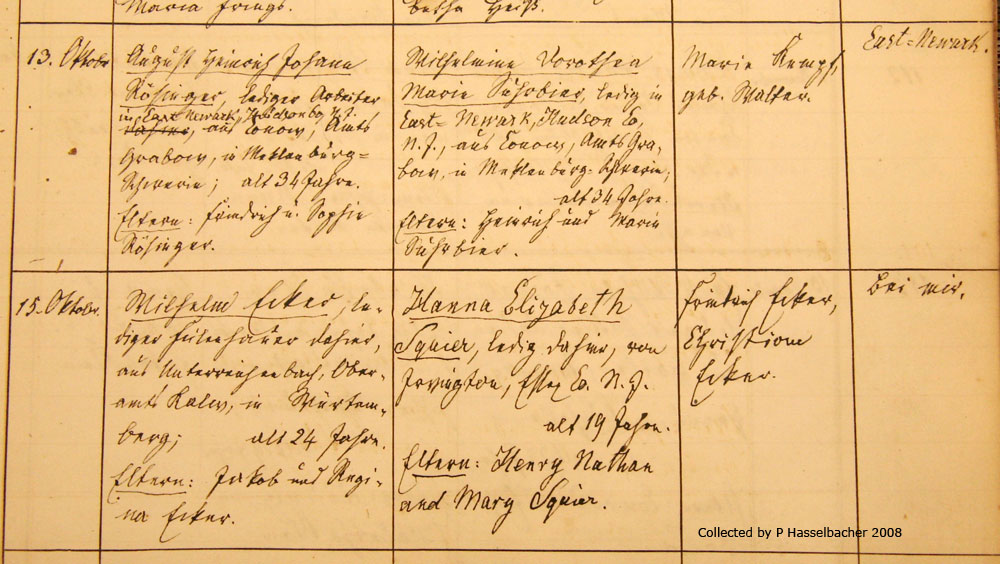 Maria Frings.
betha Heiß.
13. Oktober
August Heinrich Johann
Rösinger, lediger Arbeiter
in East Newark, Hudson Co N.J.
dahier, aus Conow, Amts
Grabow, in Meklenburg=
Schwerin; alt 34 Jahre.
Eltern: Friedrich u. Sophie
Rösinger.
Wilhelmine Dorothea
Marie Suhrbier, ledig in
East=Newark, Hudson Co,
N.J., aus Conow, Amts Gra-
bow, in Meklenburg=Schwerin;
alt 34 Jahre.
Eltern: Heinrich und Marie
Suhrbier.
Marie Rumpf,
geb. Walter.
East=Newark.
15. Oktober.
Wilhelm Ecker, le-
diger Feilenhauer dahier,
aus Unterreichenbach, Ober-
amts Kalw, in Würtem-
berg; alt 24 Jahre.
Eltern: Jakob und Regi-
na Ecker.
Hanna Elizabeth
Squier, ledig dahier, von
Irvington, Essex Co. N.J.
alt 19 Jahre.
Eltern: Henry Nathan
and Mary Squier.
Friedrich Ecker,
Christiane
Ecker.
Bei mir.
Collected by P Hasselbacher 2008